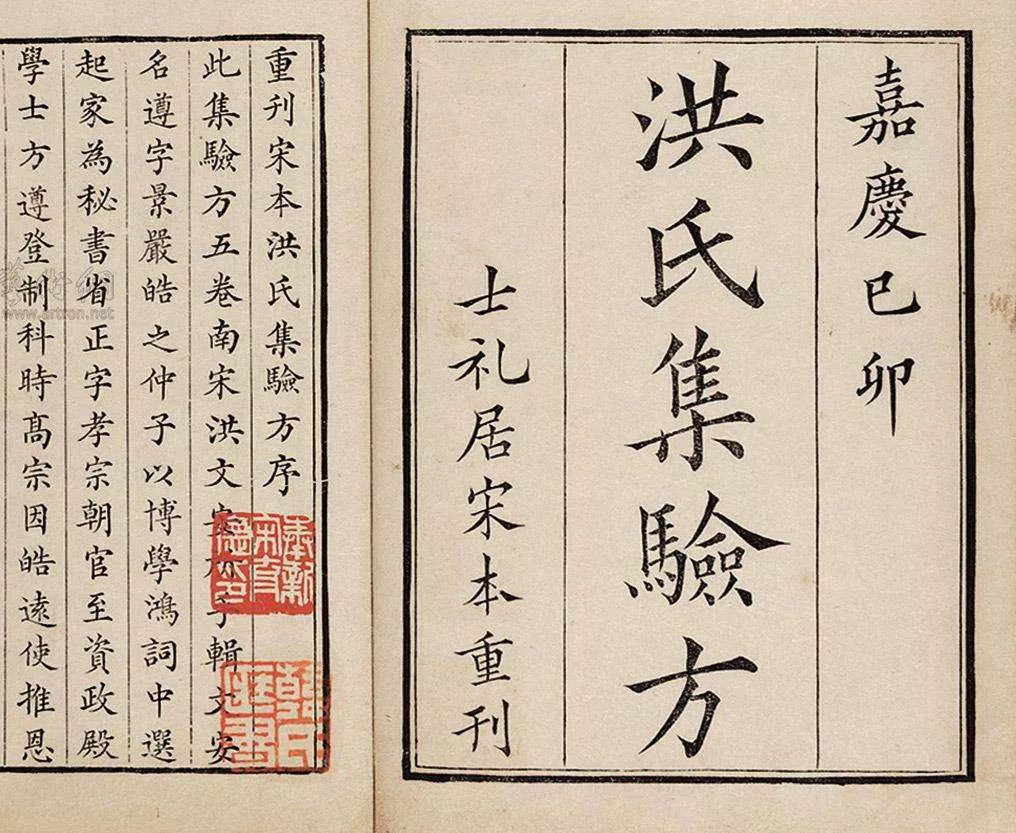 嘉慶己卯
洪氏集驗方
士礼居宋本重刊
重刊宋本洪氏集驗方序
此集驗方五卷南宋洪文安所手輯文安
名遵字景嚴皓之仲子以博學鴻詞中選
起家為秘書省正字孝宗朝官至資政殿
學士方遵登制科時高宗因皓遠使推恩
www.artron.net